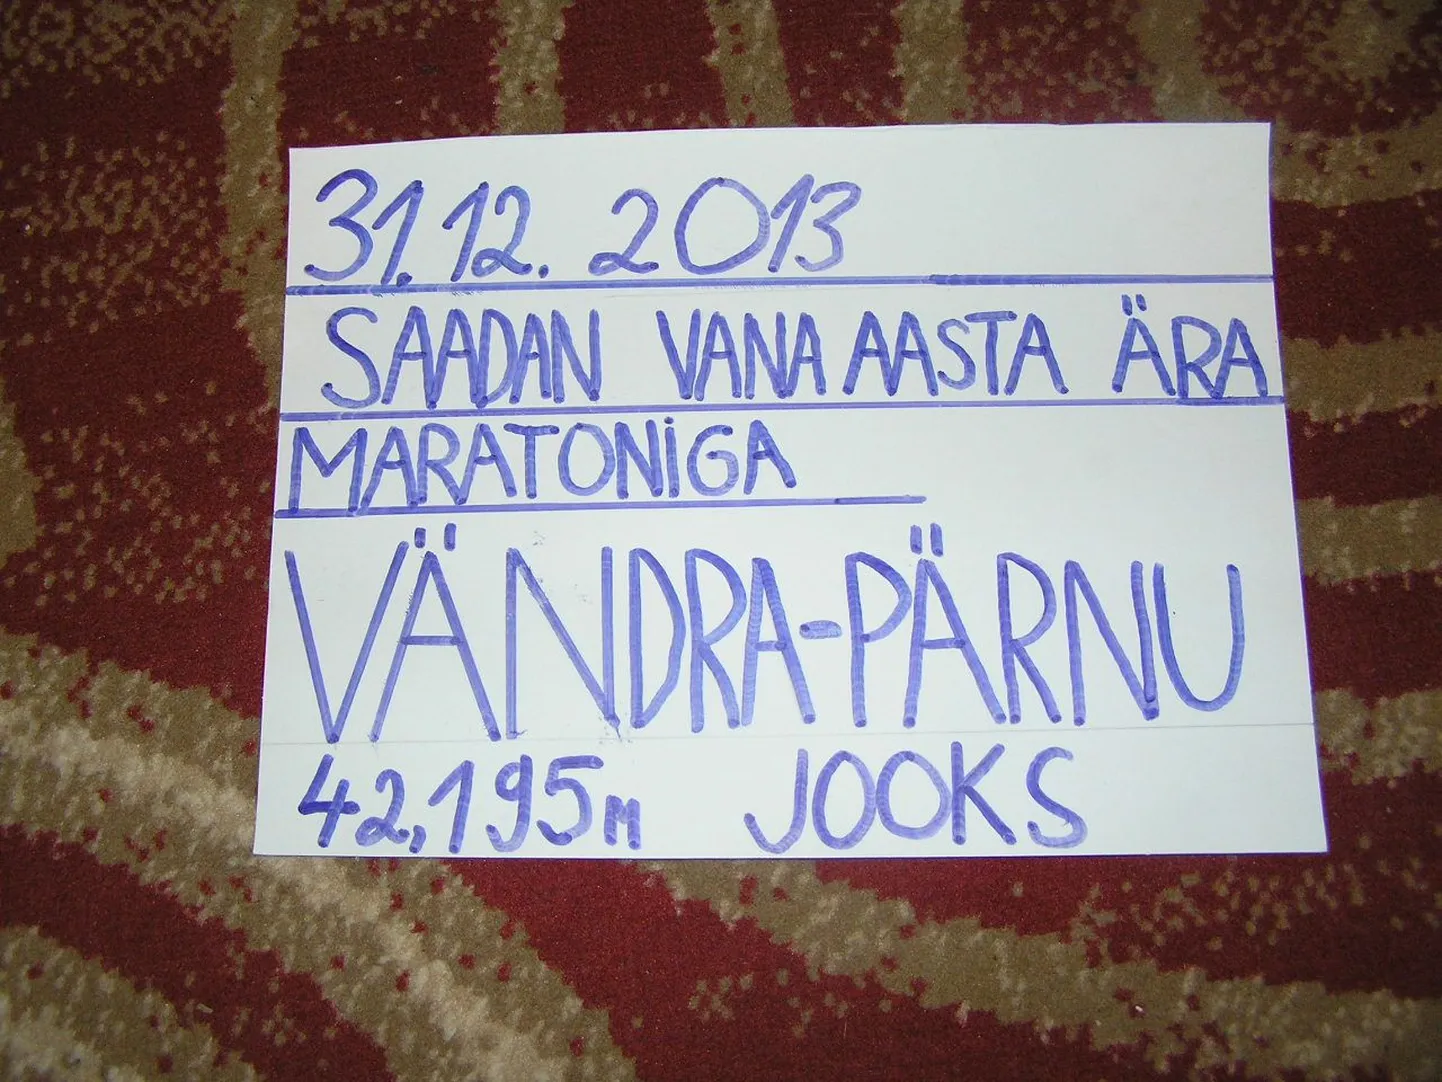 31.12.2013
SAADAN VANA AASTA ÄRA
MARATONiGA
VÄNDRA-PÄRNU
42,195m JOOKS